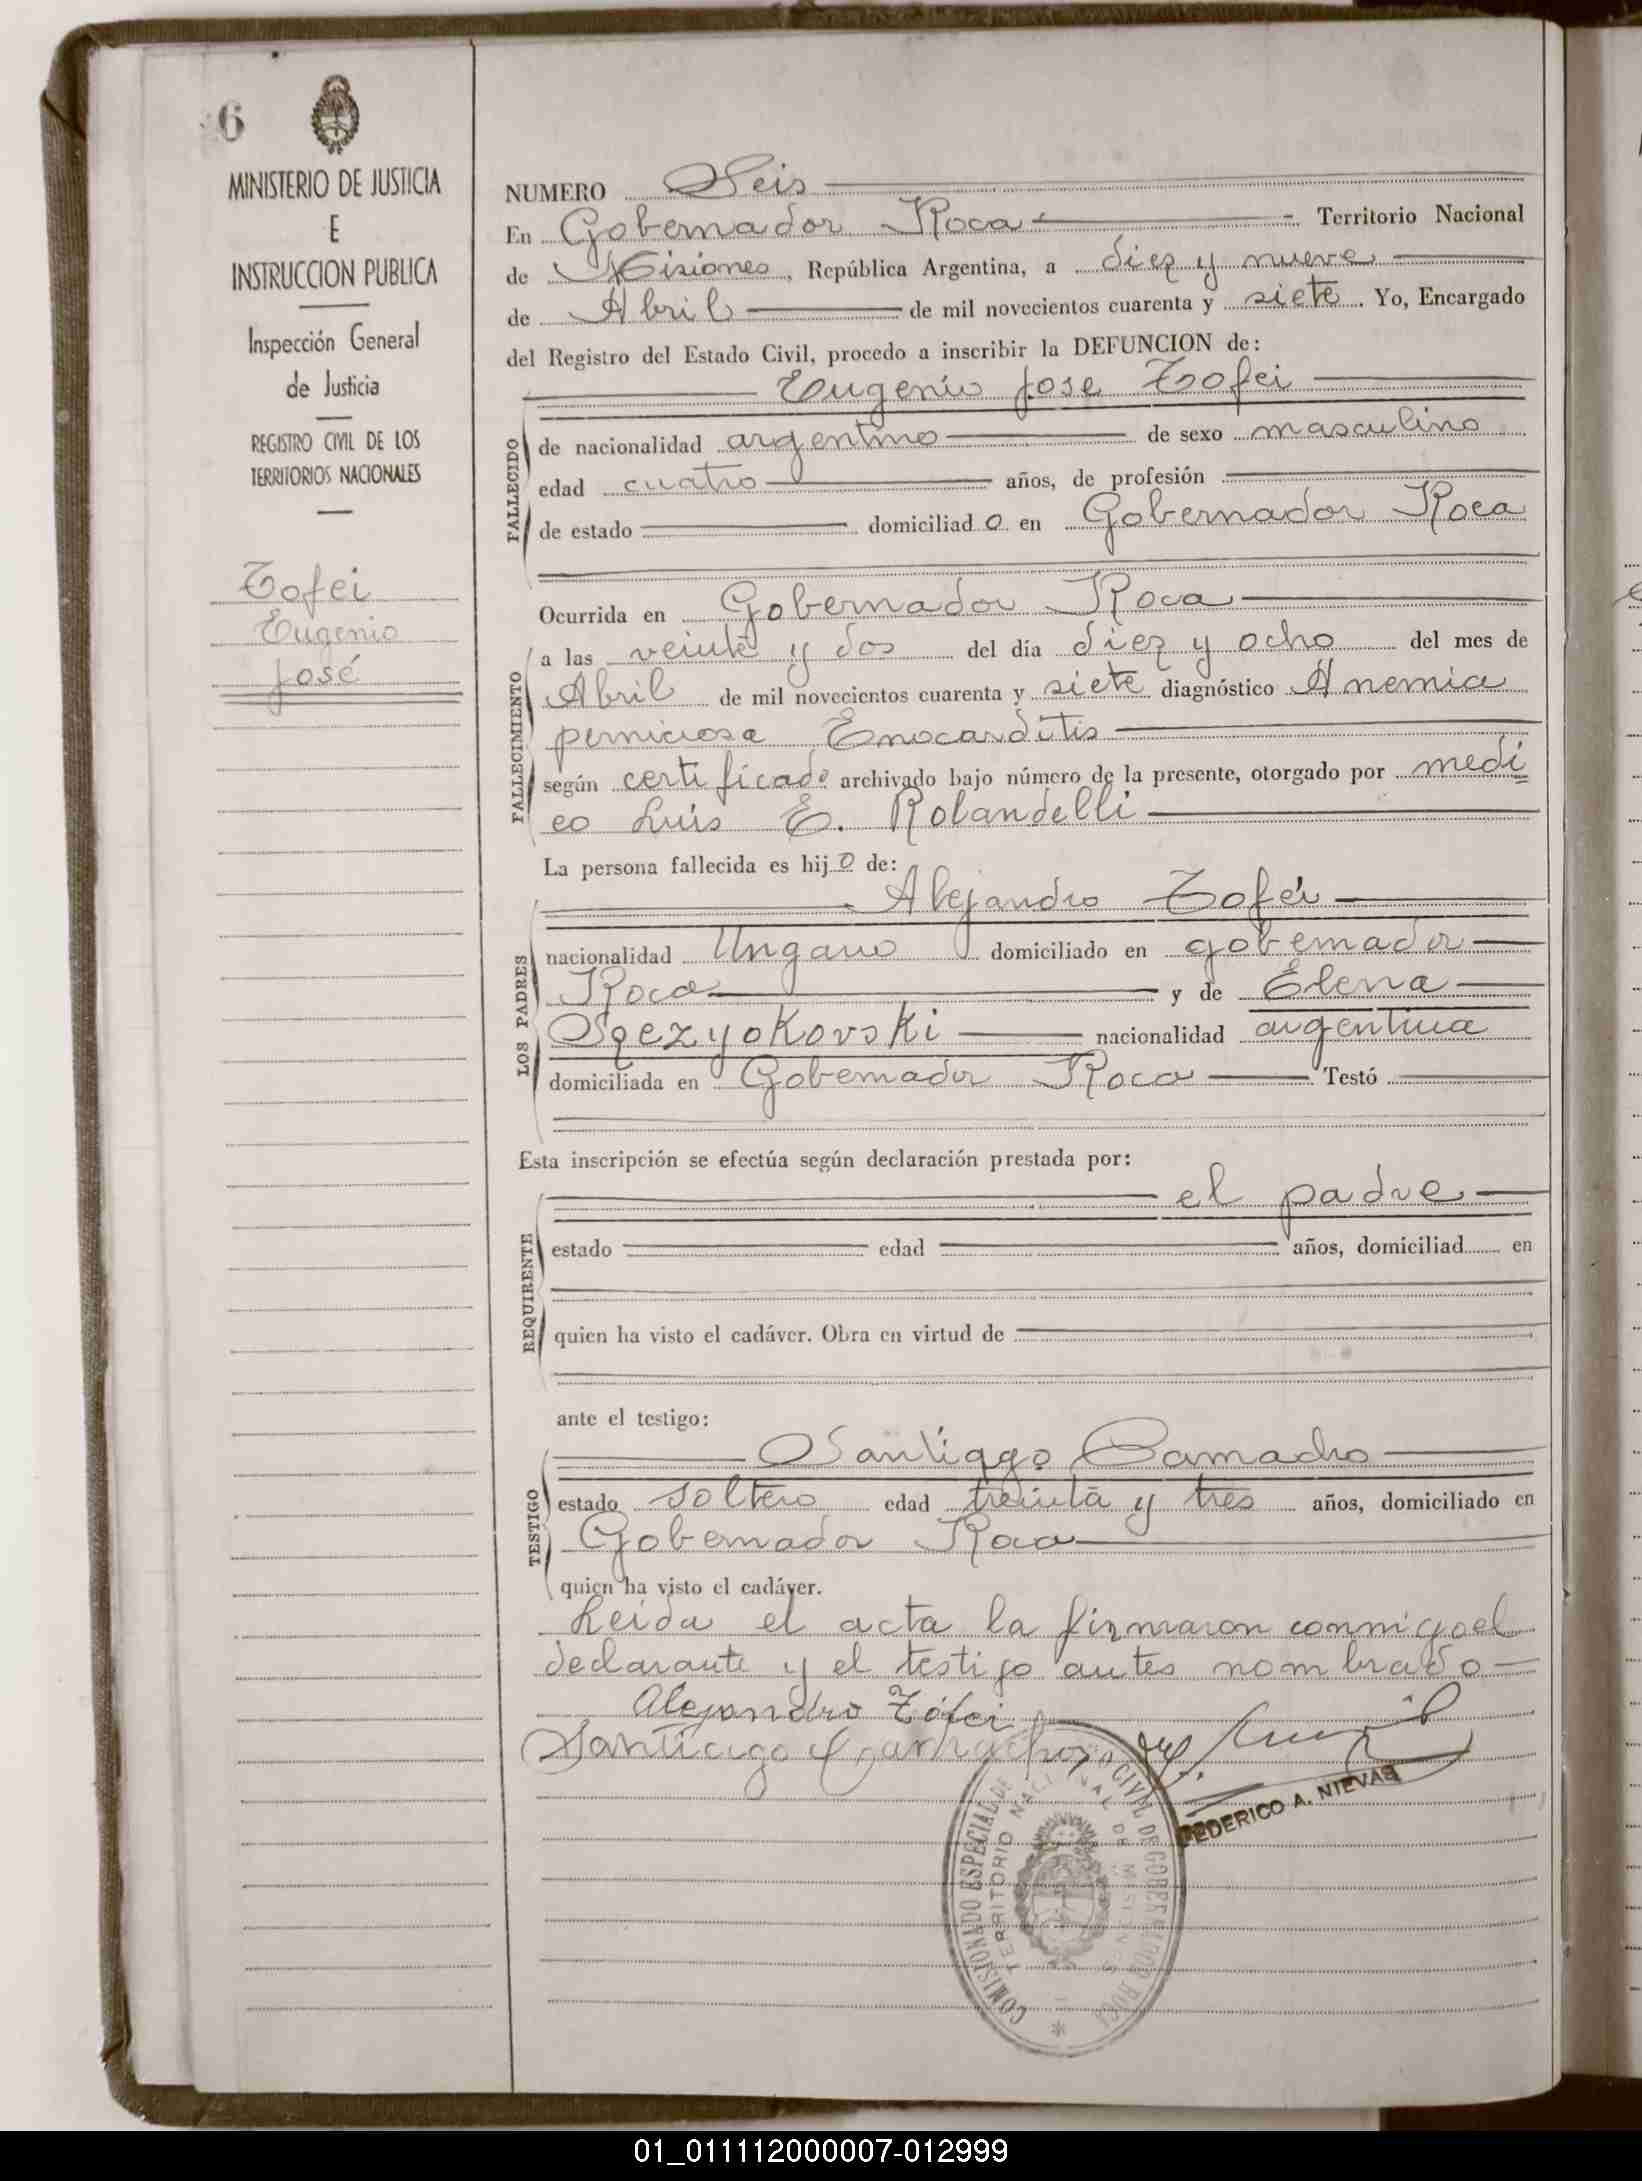 6
MINISTERIO DE JUSTICIA
E
INSTRUCCION PUBLICA
Inspección General
de Justicia
REGISTRO CIVIL DE LOS
TERRITORIOS NACIONALES
Tofei
Eugenio
José
NUMERO Seis
En Gobernador Roca Territorio Nacional
de Misiones, República Argentina, a diez y nueve
de Abril de mil novecientos cuarenta y siete. Yo, Encargado
del Registro del Estado Civil, procedo a inscribir la DEFUNCION de:
Eugenio Jose Tofei
FALLECIDO
de nacionalidad argentino de sexo masculino
edad cuatro años, de profesión
de estado domiciliado en Gobernador Roca
Ocurrida en Gobernador Roca
FALLECIMIENTO
a las veinte y dos del día diez y ocho del mes de
Abril de mil novecientos cuarenta y siete diagnóstico Anemia
perniciosa Enocarditis
según certificado archivado bajo número de la presente, otorgado por medi
co Luis E. Rolandelli
La persona fallecida es hijo de:
LOS PADRES
Alejandro Tofei
nacionalidad Ungaro domiciliado en gobernador
Roca y de Elena
Sqezyokovski nacionalidad argentina
domiciliada en Gobernador Roca Testó
Esta inscripción se efectúa según declaración prestada por:
REQUIRENTE
el padre
estado edad años, domiciliad en
quien ha visto el cadáver. Obra en virtud de
ante el testigo:
TESTIGO
Santiago Camacho
estado soltero edad treinta y tres años, domiciliado en
Gobernador Roca
quien ha visto el cadáver.
Leida el acta la firmaron conmigo el
declarante y el testigo antes nombrado
Alejandro Tófei
Santiago Camacho
FEDERICO A. NIEVAS
COMISIONADO ESPECIAL DE CIVIL DE GOBERNADOR ROCA
TERRITORIO NACIONAL DE MISIONES
01_011112000007-012999